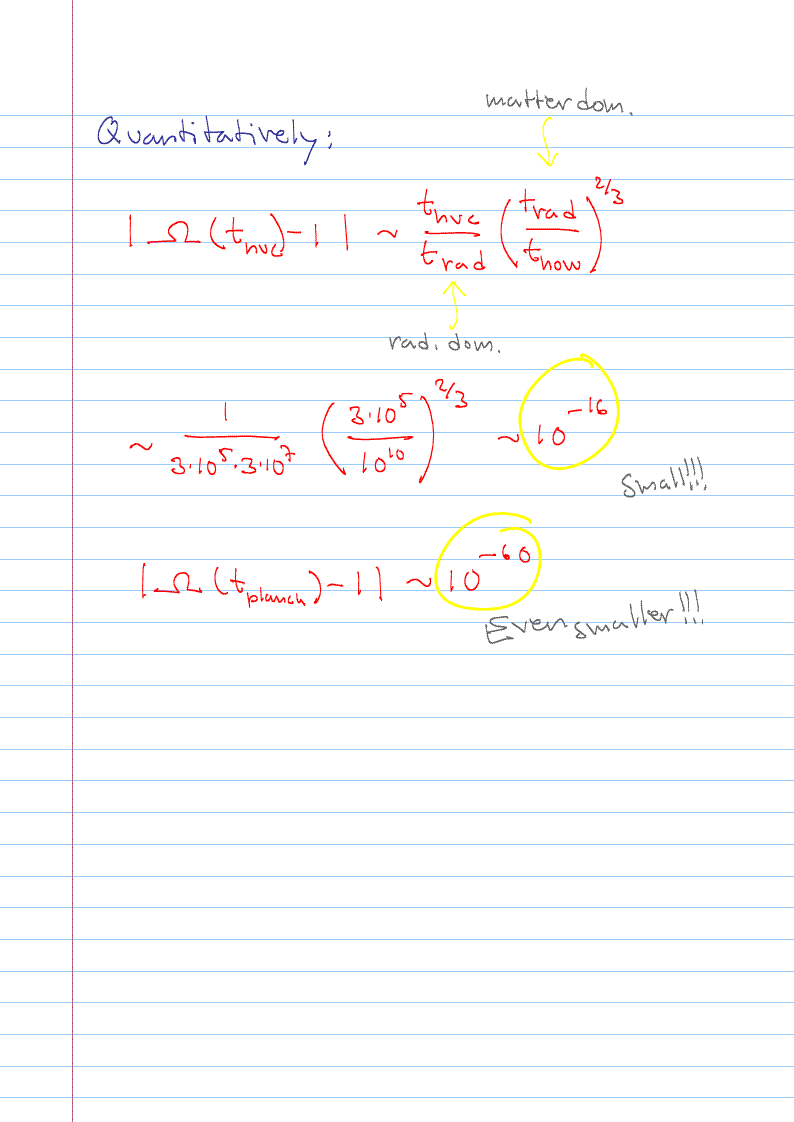 matter dom.
Quantitatively:
|Ω(t_nuc)-1| ~ t_nuc/t_rad (t_rad/t_now)^2/3
rad. dom.
~ 1/(3·10^5·3·10^7) (3·10^5/10^10)^2/3 ~ 10^-16
Small!!!
|Ω(t_planck)-1| ~ 10^-60
Even smaller!!!